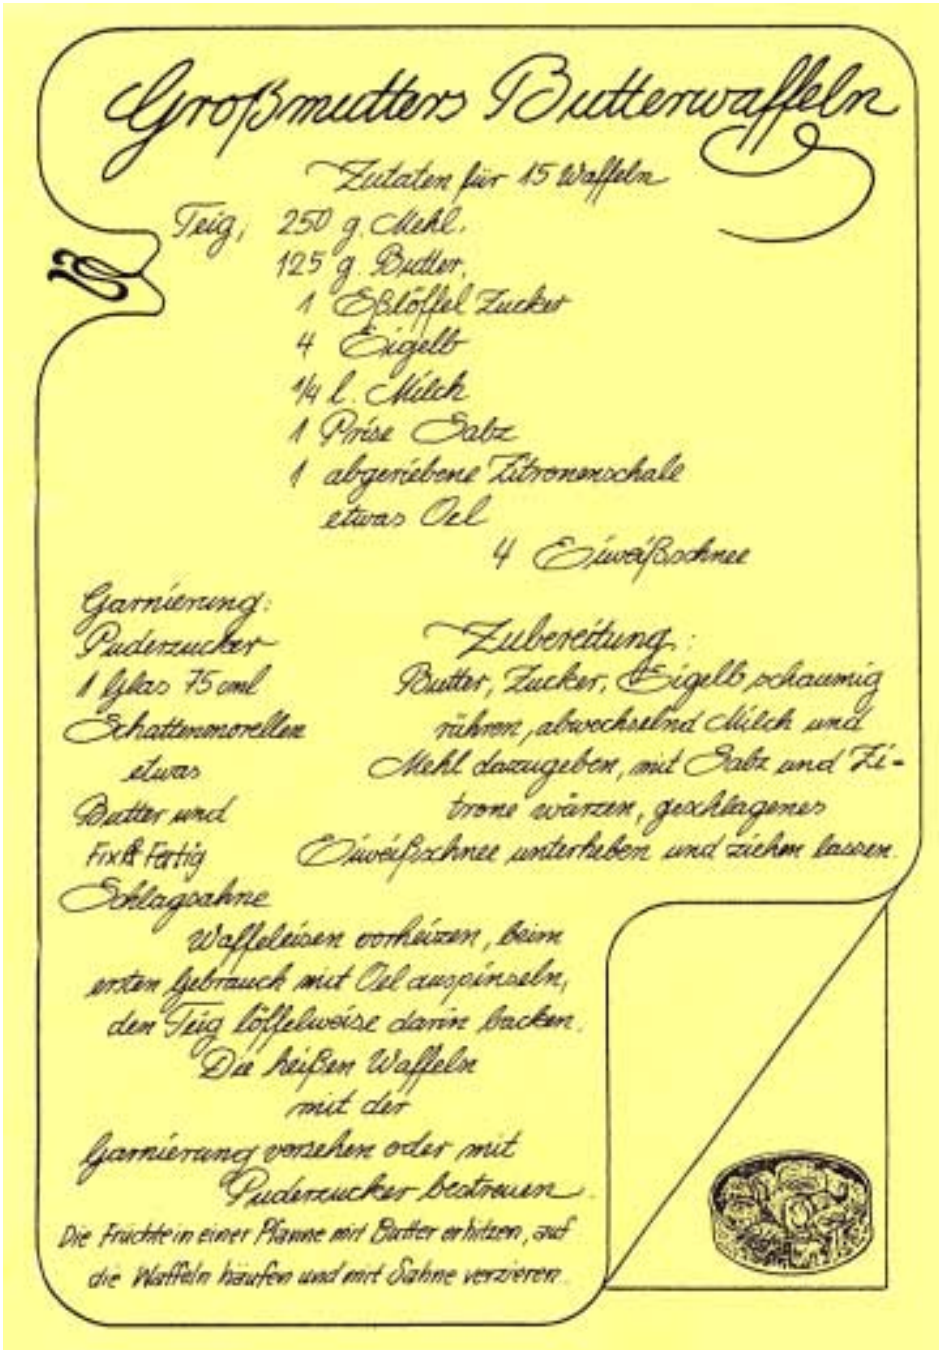 Großmutters Butterwaffeln
Zutaten für 15 Waffeln
Teig, 250 g. Mehl.
125 g. Butter.
1 Eßlöffel Zucker
4 Eigelb
1/4 l. Milch
1 Prise Salz
1 abgeriebene Zitronenschale
etwas Oel
4 Eiweißschnee
Garnierung:
Puderzucker
1 Glas 75 cml
Schattenmorellen
etwas
Butter und
Fix & Fertig
Schlagsahne
Zubereitung:
Butter, Zucker, Eigelb schaumig
rühren, abwechselnd Milch und
Mehl dazugeben, mit Salz und Zi-
trone würzen, geschlagenes
Eiweißschnee unterheben und ziehen lassen.
Waffeleisen vorheizen, beim
ersten Gebrauch mit Oel auspinseln,
den Teig löffelweise darin backen.
Die heißen Waffeln
mit der
Garnierung versehen oder mit
Puderzucker bestreuen.
Die Früchte in einer Pfanne mit Butter erhitzen, auf
die Waffeln häufen und mit Sahne verzieren.